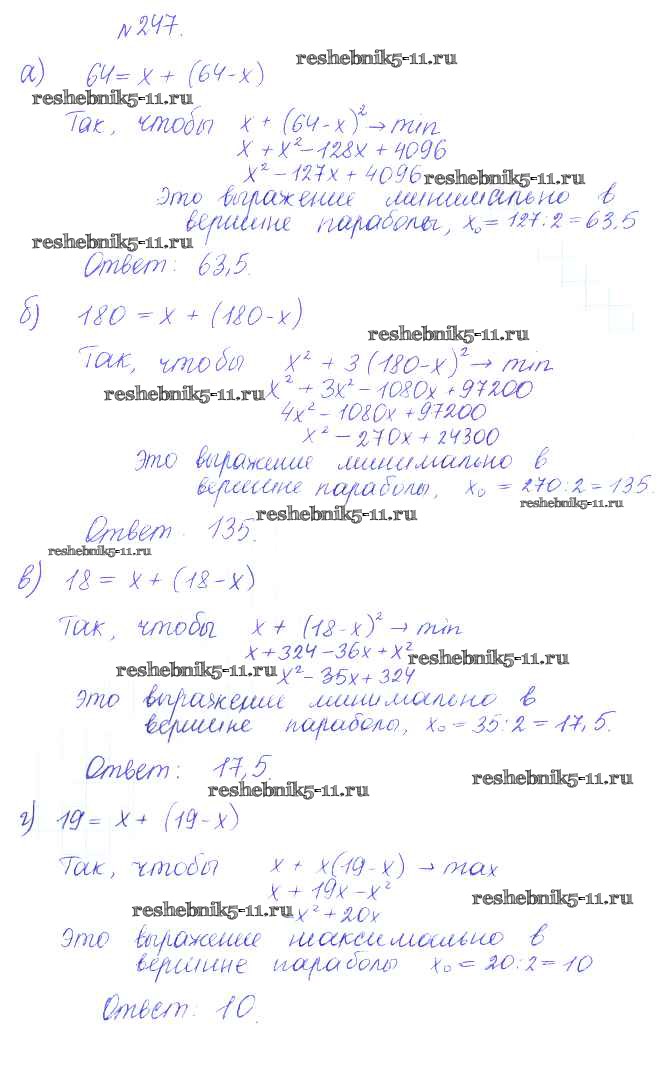 № 247.
reshebnik5-11.ru
а) 64 = x + (64-x)
reshebnik5-11.ru
Так, чтобы x + (64-x)² → min
x + x² - 128x + 4096
x² - 127x + 4096
reshebnik5-11.ru
Это выражение минимально в
вершине параболы, x₀ = 127:2 = 63,5
reshebnik5-11.ru
Ответ: 63,5.
б) 180 = x + (180-x)
reshebnik5-11.ru
Так, чтобы x² + 3(180-x)² → min
reshebnik5-11.ru
x² + 3x² - 1080x + 97200
4x² - 1080x + 97200
x² - 270x + 24300
Это выражение минимально в
вершине параболы, x₀ = 270:2 = 135.
reshebnik5-11.ru
reshebnik5-11.ru
Ответ. 135.
reshebnik5-11.ru
в) 18 = x + (18-x)
Так, чтобы x + (18-x)² → min
x + 324 - 36x + x²
reshebnik5-11.ru
reshebnik5-11.ru
x² - 35x + 324
Это выражение минимально в
вершине параболы, x₀ = 35:2 = 17,5.
Ответ: 17,5.
reshebnik5-11.ru
reshebnik5-11.ru
г) 19 = x + (19-x)
Так, чтобы x + x(19-x) → max
x + 19x - x²
reshebnik5-11.ru
reshebnik5-11.ru
-x² + 20x
Это выражение максимально в
вершине параболы x₀ = 20:2 = 10
Ответ: 10.